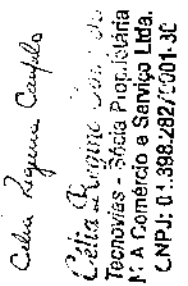 Celia Regina
Célia Regina
Tecnovias - Sócia Proprietária
M A Comércio e Serviço Ltda.
CNPJ: 01.398.282/0001-30